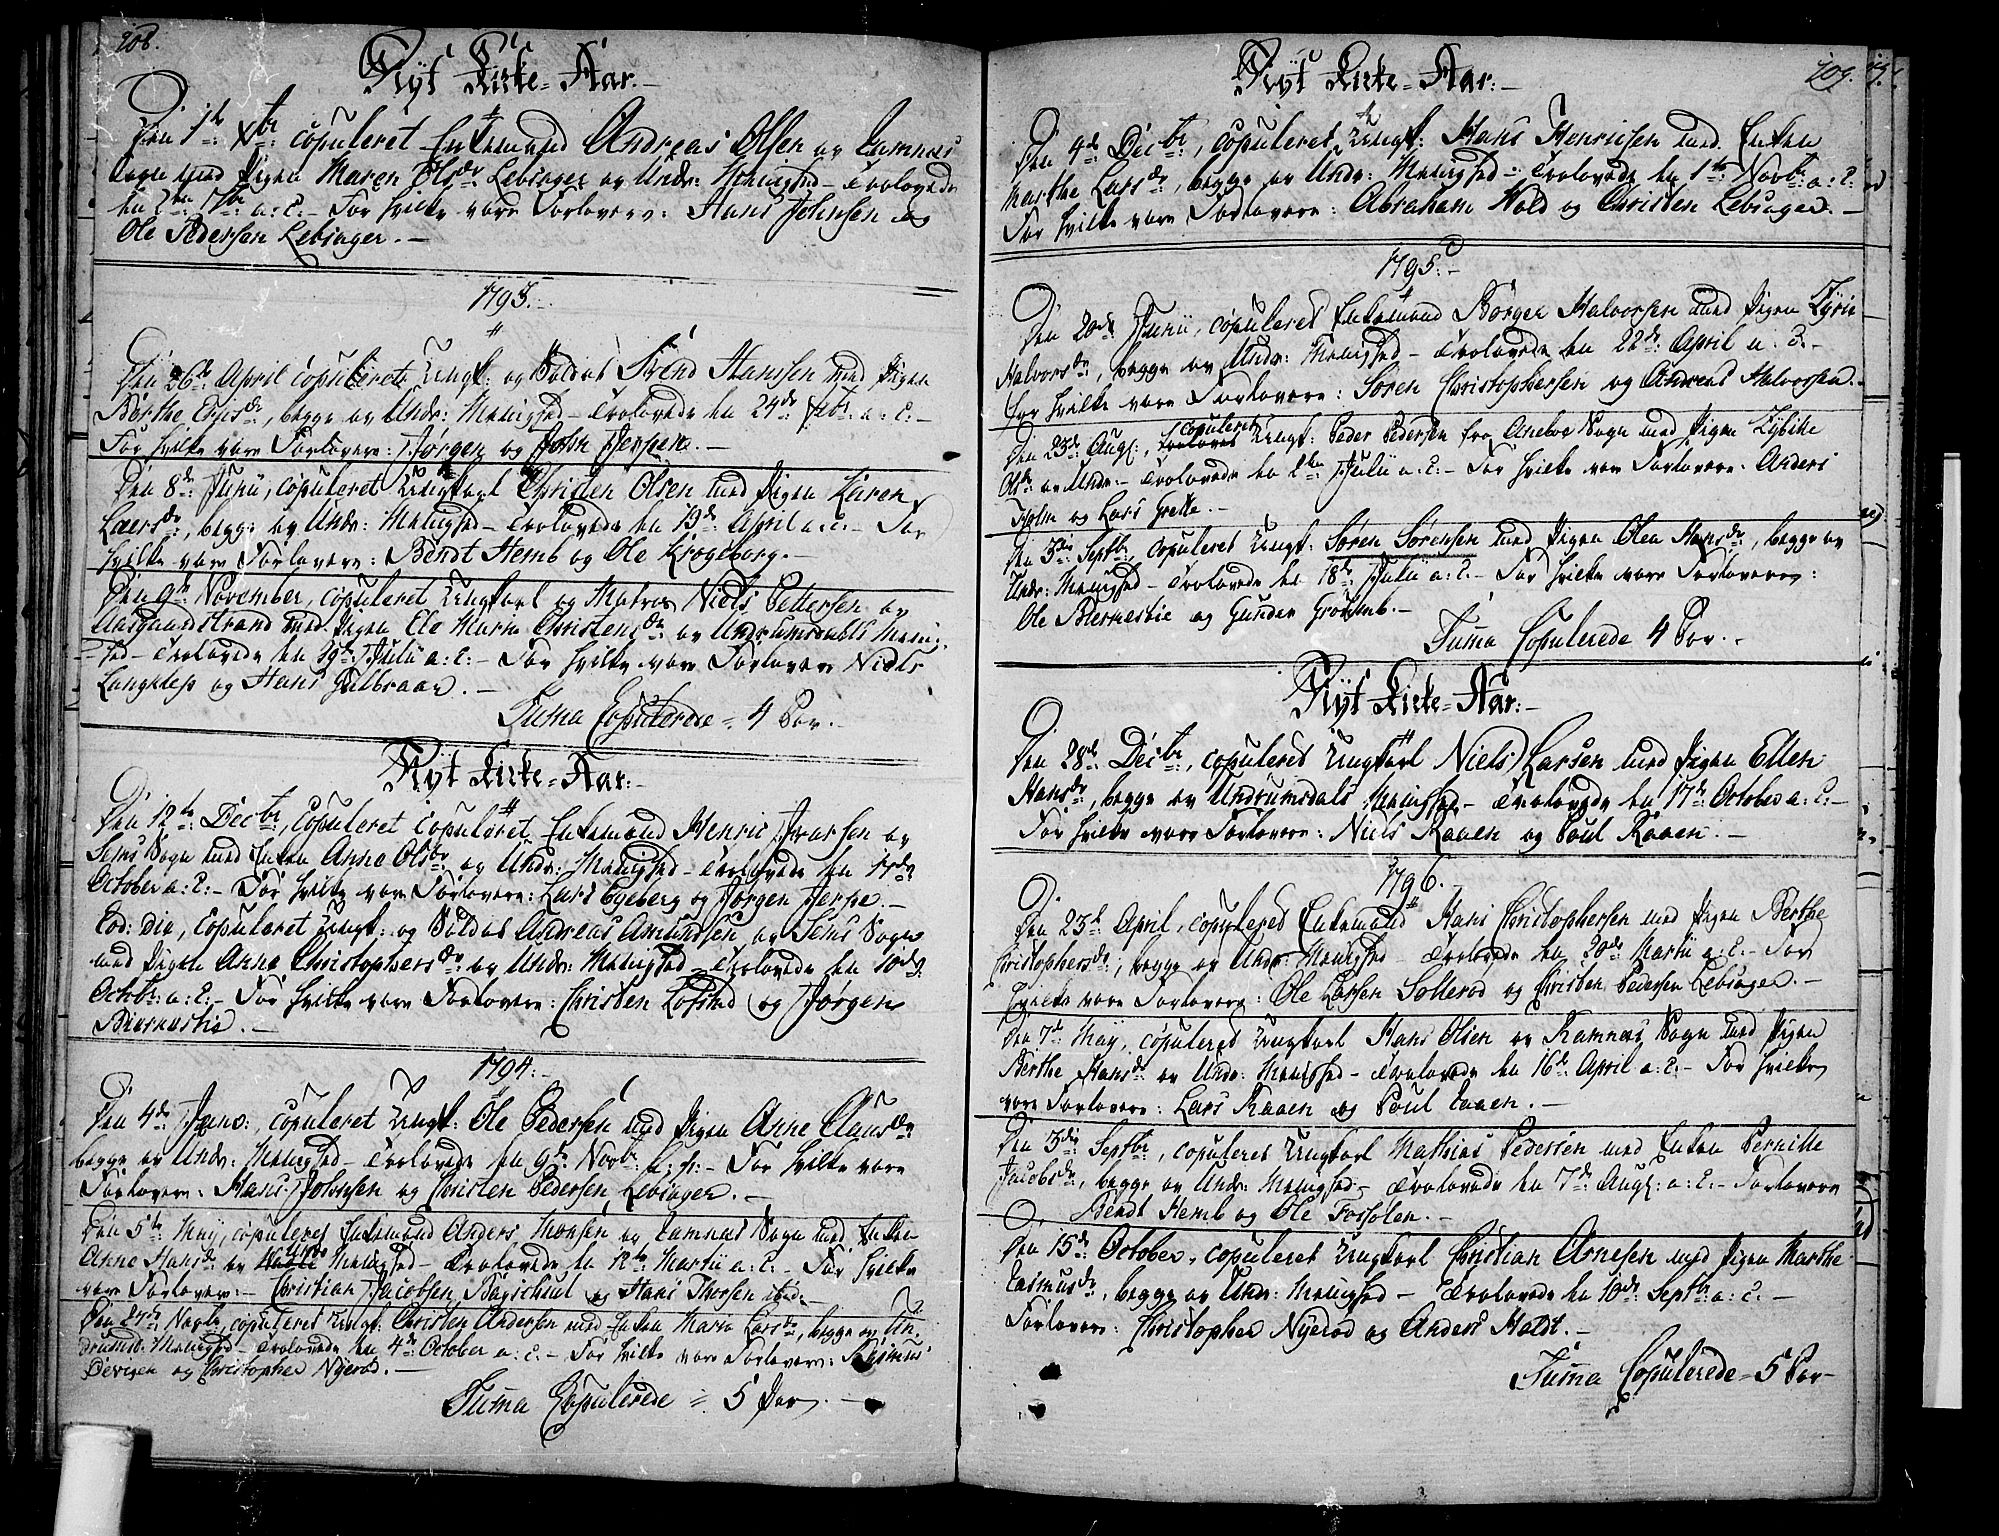 208.
Nyt Kirke-Aar.-
Den 1te Xbr: copuleret Enkemand Andreas Olsen av Ramnæs
Sogn med Pigen Maren Olsdr Lebsager av Undr: Menighed - Trolovede
den 7br: a: c:- For hvilke vare Forlovere: Hans Johnsen og
Ole Pedersen Lebsager.-
1793.-
Den 26de April copuleret Ungk: og Soldat Svend Hanssen med Pigen
Børthe Ersdr, begge av Undr: Menighed - Trolovede den 24de Febr: a: c:-
For hvilke vare Forlovere: Jørgen og John Jerpen.-
Den 8de Junii, copuleret Ungkarl Christen Olsen med Pigen Karen
Laersdr, begge av Undr: Menighed - Trolovede den 19de April a: c:- For
hvilke vare Forlovere: Bendt Hemb og Ole Krogeborg.-
Den 9de November, copuleret Ungkarl og Matros Niels Pettersen av
Aasgaardstrand med Pigen Ele Maria Christensdr av Undrumsdalls Meni-
hed - Trolovede den 19de Julii a: c:- For hvilke vare Forlovere Niels
Langklep og Hans Gulbraar.-
Suma Copulerede = 4 Par.-
Nyt Kirke-Aar:-
Den 12te Decbr, copuleret copuleret Enkemand Henric Ivarsen av
Sems Sogn med Enken Anna Olsdr av Undr: Menighed - Trolovede den 11de
October a: c:- For hvilke vare Forlovere: Lars Egeberg og Jørgen Jerpe.-
Eod: Die, copuleret Ungk: og Soldat Andreas Amundsen av Sems Sogn
med Pigen Anne Christophersdr av Undr: Menighed - Trolovede den 10de
Octbr: a: c:- For hvilke vare Forlovere: Christen Lofsted og Jørgen
Biernestie.-
1794.-
Den 4de Janv:, copuleret Ungk: Ole Pedersen med Pigen Anne Clausdr
begge av Undr: Menighed - Trolovede den 9de Novbr: a: p:- For hvilke vare
Forlovere: Hans Johnsen og Christen Pedersen Lebsager.-
Den 5te May, copuleret Enkemand Anders Monsen av Ramnæs Sogn med Enken
Anne Hansdr av Undr Menighed - Trolovede den 12te Martii a: c:- For hvilke
vare Forlovere:- Christian Jacobsen Bagschiul og Hans Thorsen ibid:-
Den 27de Novbr, copuleret Ungk: Christen Andersen med Enken Maria Larsdr, begge av Un-
drumsd: Menighed - Trolovede den 4de October a: c:- For hvilke vare Forlovere: Rasmus
Bevigen og Christopher Nyerød.-
Suma Copulerede = 5 Par.-
209.
Nyt Kirke-Aar:-
Den 4de Decbr:, copuleret Ungk: Hans Henricsen med Enken
Marthe Larsdr, begge av Undr: Menighed - Trolovede den 1te Novbr: a: c:
For hvilke vare Forlovere: Abraham Hold og Christen Lebsager.-
1795.-
Den 20de Junii, copuleret Enkemand Børger Halvorsen med Pigen Kyrie
Halvorsdr, begge av Undr: Menighed - Trolovede den 22de April a: c:-
for hvilke vare Forlovere: Søren Christophersen og Andreas Halvorsen.
Den 23de Aug:, copuleret Ungk: Peder Pedersen fra Aneboe Sogn med Pigen Zybille
Olsdr av Undr:- Trolovede den 2den Julii a: c:- For hvilke vare Forlovere: Anders
Holm og Lars Grette.-
Den 3die Septbr, copuleret Ungk: Søren Sørensen med Pigen Olea Hansdr, begge av
Undr: Menighed - Trolovede den 18de Julii a: c:- For hvilke vare Forlovere:
Ole Biernestie og Gunder Groumb.-
Suma Copulerede 4 Par.-
Nyt Kirke-Aar:-
Den 28de Decbr:, copuleret Ungkarl Niels Larsen med Pigen Ellen
Hansdr, begge av Undrumsdals Menighed - Trolovede den 17de October a: c:-
For hvilke vare Forlovere: Niels Raaen og Poul Raaen.-
1796.
Den 23de April, copuleret Enkemand Hans Christophersen med Pigen Berthe
Christophersdr, begge av Undr: Menighed - Trolovede den 20de Martii a: c:- For
hvilke vare Forlovere: Ole Larsen Solerød og Christen Pedersen Lebsager.-
Den 7de May, copuleret Ungkarl Hans Olsen av Ramnæs Sogn med Pigen
Berthe Hansdr av Undr: Menighed - Trolovede den 16de April a: c:- For hvilke
vare Forlovere: Lars Raaen og Poul Raaen.-
Den 3die Septbr, copuleret Ungkarl Mathias Pedersen med Enken Pernille
Jacobsdr, begge av Undr: Menighed - Trolovede den 7de Aug: a: c:- Forlovere
Bendt Hemb og Ole Fossolen.-
Den 15de October, copuleret Ungkarl Christian Arnesen med Pigen Marthe
Rasmusdr, begge av Undr: Menighed - Trolovede den 10de Septbr a: c:-
Forlovere: Christopher Nyerød og Anders Holdt.-
Suma Copulerede = 5 Par-